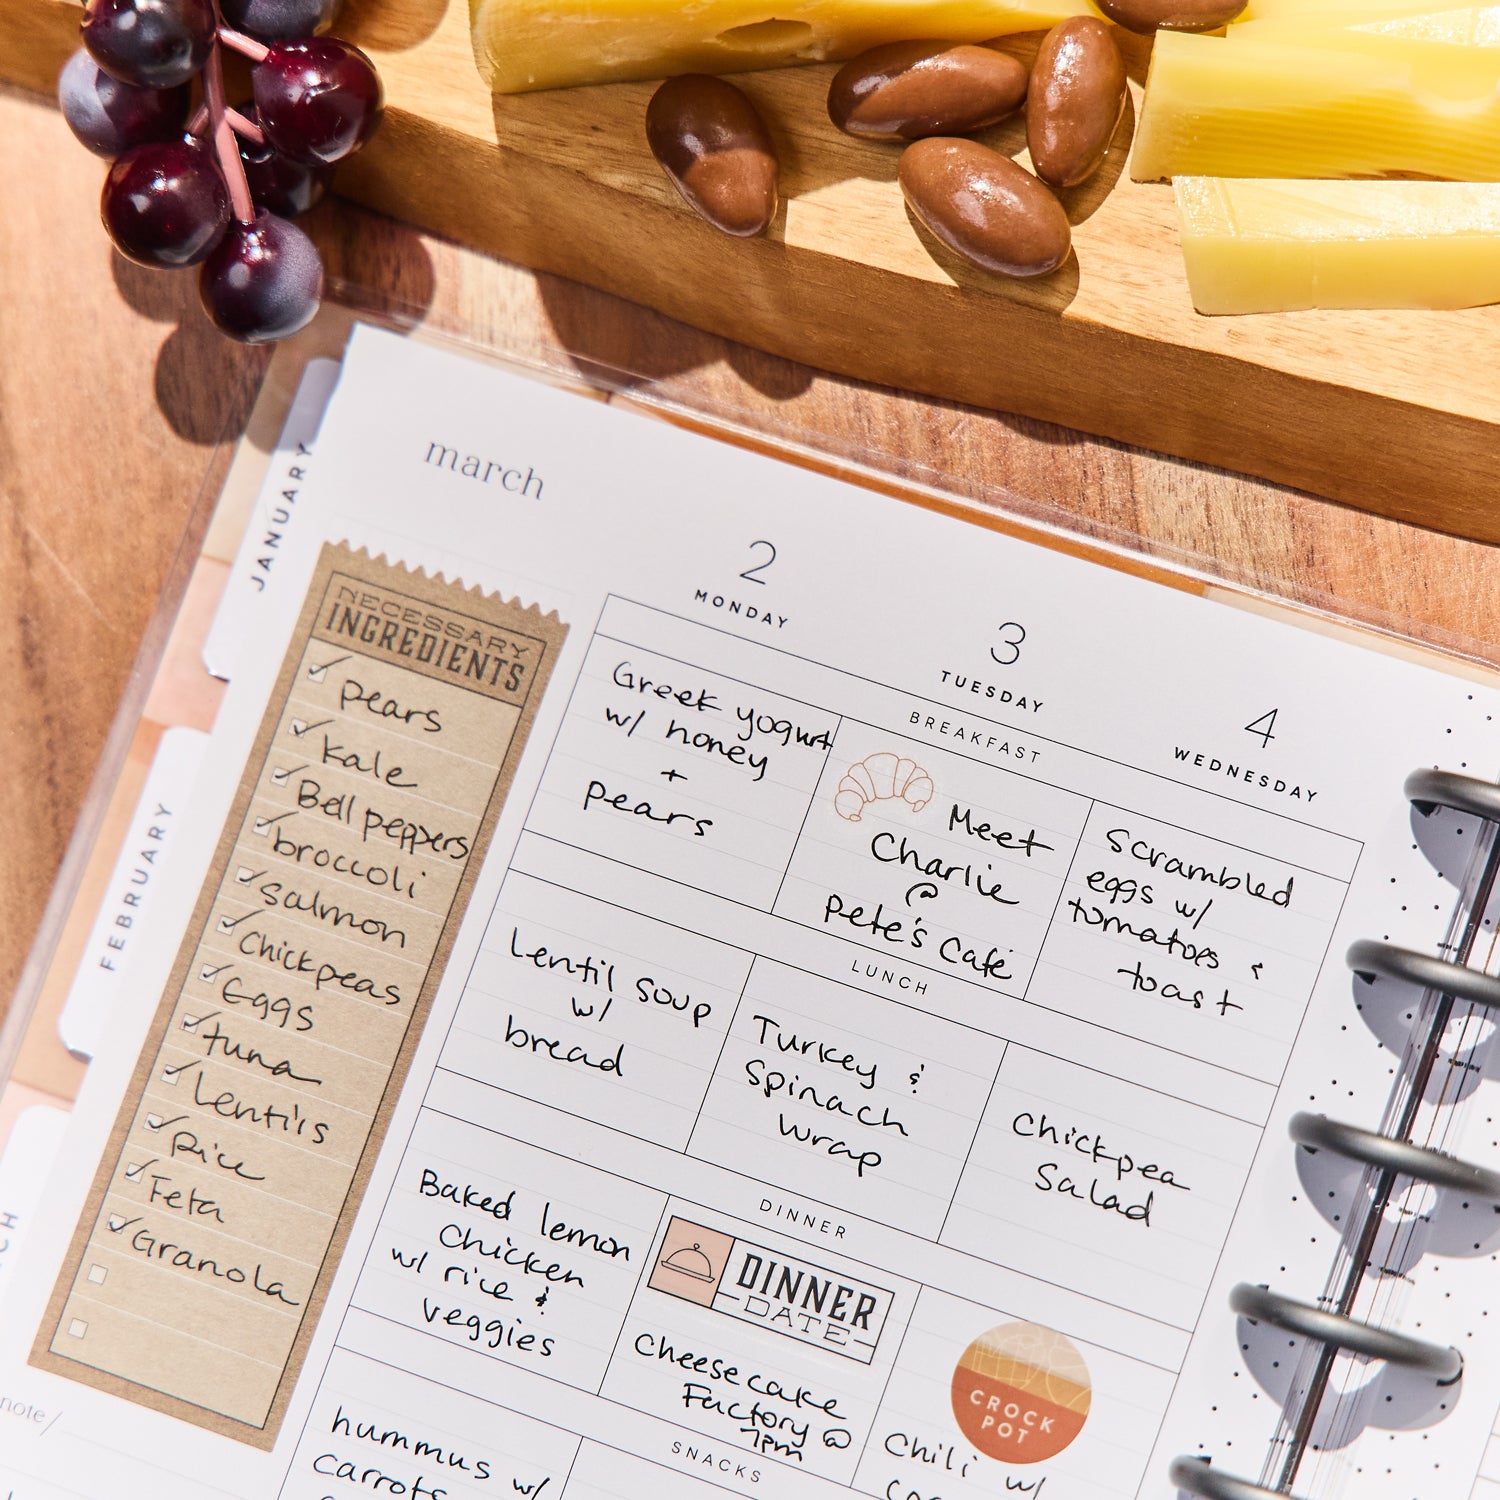 march
JANUARY
FEBRUARY
NECESSARY
INGREDIENTS
pears
Kale
Bell peppers
broccoli
salmon
Chickpeas
Eggs
tuna
Lentils
Rice
Feta
Granola
note/
2
MONDAY
3
TUESDAY
4
WEDNESDAY
BREAKFAST
Greek yogurt
w/ honey
+
pears
Meet
Charlie
@
Pete's Café
Scrambled
eggs w/
tomatoes &
toast
LUNCH
Lentil soup
w/
bread
Turkey &
Spinach
wrap
Chickpea
Salad
DINNER
Baked lemon
Chicken
w/ rice &
veggies
DINNER
DATE
Cheesecake
Factory @
7pm
CROCK
POT
Chili w/
SNACKS
hummus w/
Carrots